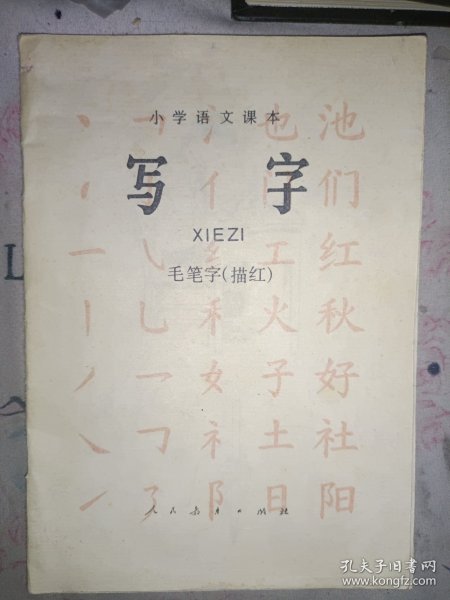 小学语文课本
写字
XIEZI
毛笔字(描红)
氵 也 池
亻 门 们
纟 工 红
禾 火 秋
女 子 好
礻 土 社
阝 日 阳
人民教育出版社
孔夫子旧书网
www.kongfz.com